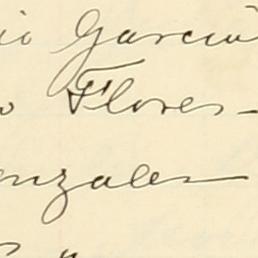 io Garcia
o Flores
enzales
"